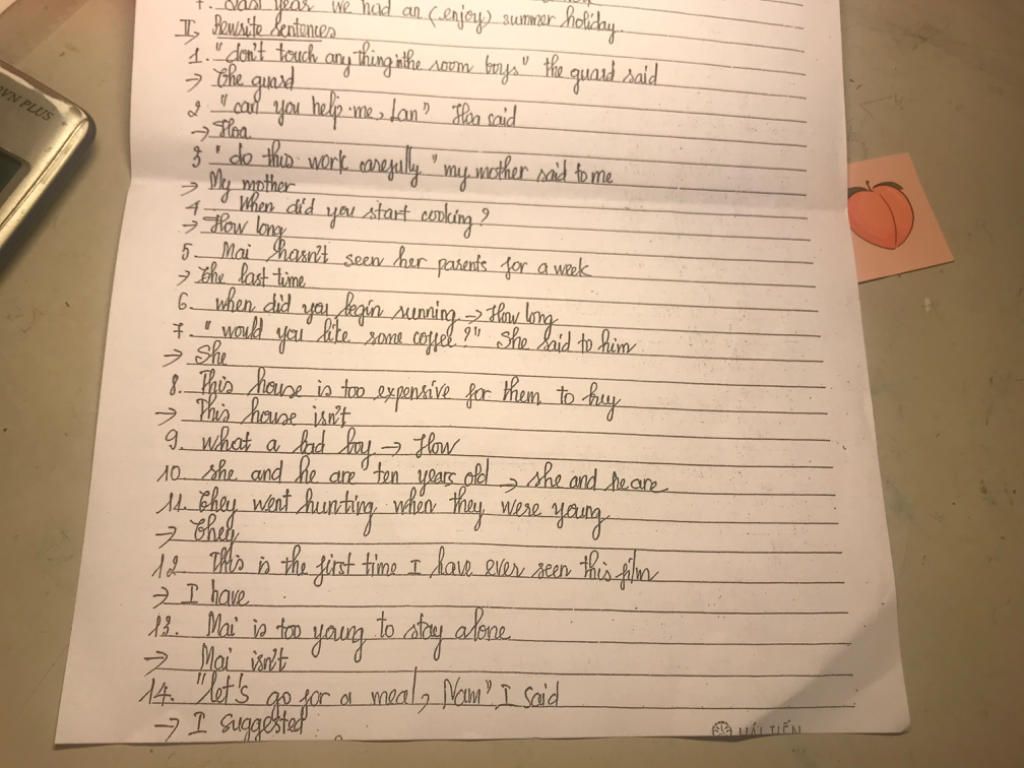 7. Last year we had an (enjoy) summer holiday.
II, Rewrite sentences
1. "don't touch any thing in the room boys" the guard said
→ The guard
2 "can you help me, Lan" Hoa said
→ Hoa
3 "do this work carefully" my mother said to me
→ My mother
4 - When did you start cooking?
→ How long
5. Mai hasn't seen her parents for a week
→ The last time
6. when did you begin running → How long
7. "would you like some coffee?" She said to him
→ She
8. This house is too expensive for them to buy
→ This house isn't
9. what a bad boy → How
10. she and he are ten years old → she and he are
11. They went hunting when they were young
→ They
12. This is the first time I have ever seen this film
→ I have
13. Mai is too young to stay alone
→ Mai isn't
14. "let's go for a meal, Nam" I said
→ I suggested
HẢI TIẾN
VN PLUS